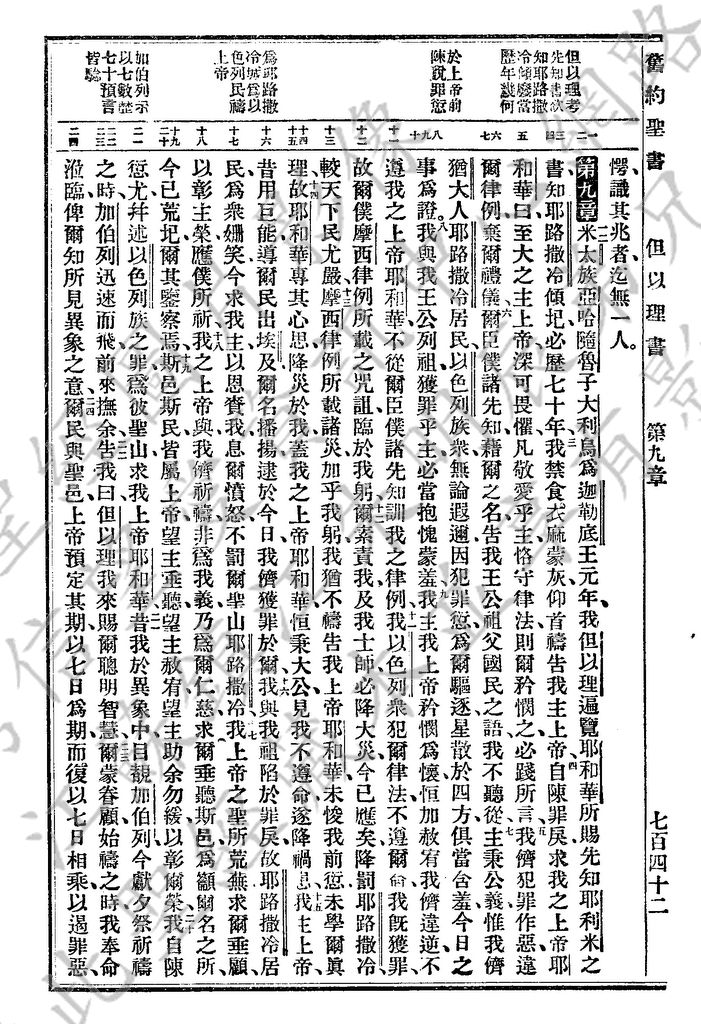 舊約聖書 但以理書 第九章 七百四十二
但以理考
先知書次
知耶路撒
冷傾廢當
歷年幾何
於上帝前
陳說罪愆
為耶路撒
冷城為以
色列民禱
上帝
加伯列示
以七數歷
七十預言
皆驗
一二 三四 五 六七 八九 十 十一 十二 十三 十四 十五 十六 十七 十八 十九 二十 二一 二二 二三 二四
愕識其兆者迄無一人。
第九章米太族亞哈隨魯子大利烏為迦勒底王元年我但以理遍覽耶和華所賜先知耶利米之
書知耶路撒冷傾圮必歷七十年我禁食衣麻蒙灰仰首禱告我主上帝自陳罪戾求我之上帝耶
和華曰至大之主上帝深可畏懼凡敬愛乎主恪守律法則爾矜憫之必踐所言我儕犯罪作惡違
爾律例棄爾禮儀爾臣僕諸先知藉爾之名告我王公祖父國民之語我不聽從主秉公義惟我儕
猶大人耶路撒冷居民以色列族衆無論遐邇因犯罪愆為爾驅逐星散於四方俱當含羞今日之
事為證我與我王公列祖獲罪乎主必當抱愧蒙羞我主我上帝矜憫為懷恒加赦宥我儕違逆不
遵我之上帝耶和華不從爾臣僕諸先知訓我之律例我以色列衆犯爾律法不遵爾命我既獲罪
故爾僕摩西律例所載之咒詛臨於我躬爾素責我及我士師必降大災今已應矣降罰耶路撒冷
較天下民尤嚴摩西律例所載諸災加乎我躬我猶不禱告我上帝耶和華未悛我前愆未學爾眞
理故耶和華專其心思降災於我蓋我之上帝耶和華恒秉大公見我不遵命遂降禍 我主上帝
昔用巨能導爾民出埃及爾名播揚逮於今日我儕獲罪於爾我與我祖陷於罪戾故耶路撒冷居
民為衆姍笑今求我主以恩賚我息爾憤怒不罰爾聖山耶路撒冷我上帝之聖所荒蕪求爾垂顧
以彰主榮應僕所祈我之上帝與我儕祈禱非為我義乃為爾仁慈求爾垂聽斯邑為籲爾名之所
今已荒圮爾其鑒察焉斯邑斯民皆屬上帝望主垂聽望主赦宥望主助余勿緩以彰爾榮我自陳
愆尤幷述以色列族之罪為彼聖山求我上帝耶和華昔我於異象中目覩加伯列今獻夕祭祈禱
之時加伯列迅速而飛前來撫余告我曰但以理我來賜爾聰明智慧爾蒙眷顧始禱之時我奉命
涖臨俾爾知所見異象之意爾民與聖邑上帝預定其期以七日為期而復以七日相乘以遏罪惡